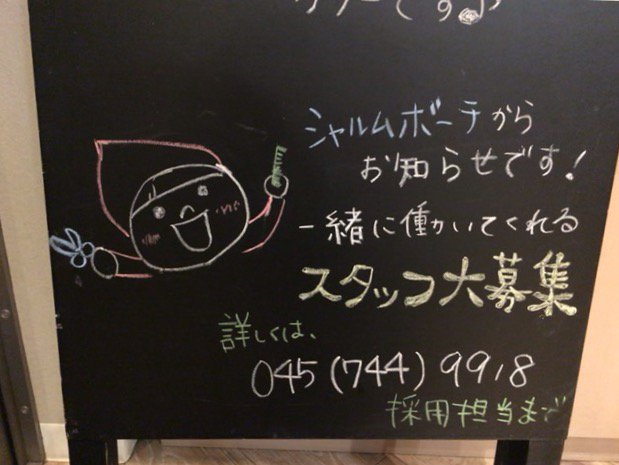 です♪
シャルムボーテから
お知らせです！
一緒に働いてくれる
スタッフ大募集
詳しくは、
045(744)9918
採用担当まで